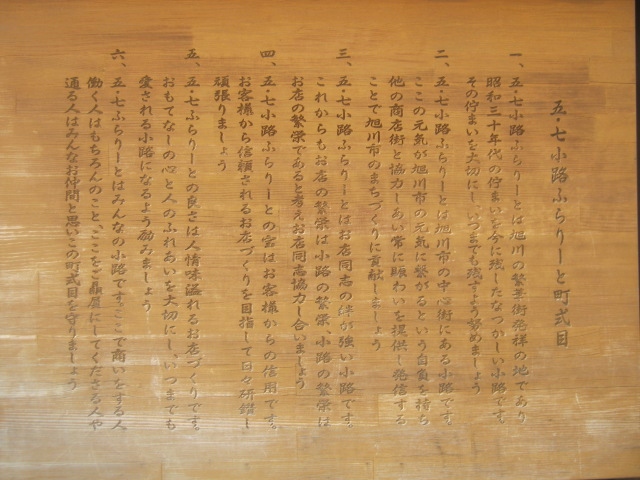 五・七小路ふらりーと町弐目
一、五・七小路ふらりーとは旭川の繁華街発祥の地であり
昭和三十年代の佇まいを今に残したなつかしい小路です。
その佇まいを大切にし、いつまでも残すよう努めましょう
二、五・七小路ふらりーとは旭川市の中心街にある小路です。
ここの元気が旭川市の元気に繋がるという自負を持ち
他の商店街と協力しあい常に賑わいを提供し発信する
ことで旭川市のまちづくりに貢献しましょう
三、五・七小路ふらりーとはお店同志の絆が強い小路です。
これからもお店の繁栄は小路の繁栄、小路の繁栄は
お店の繁栄であると考えお店同志協力し合いましょう
四、五・七小路ふらりーとの宝はお客様からの信用です。
お客様から信頼されるお店づくりを目指して日々研鑽し
頑張りましょう
五、五・七ふらりーとの良さは人情味溢れるお店づくりです。
おもてなしの心と人のふれあいを大切にし、いつまでも
愛される小路になるよう励みましょう
六、五・七ふらりーとはみんなの小路です。ここで商いをする人
働く人はもちろんのこと、ここをご贔屓にしてくださる人や
通る人はみんなお仲間と思いこの町弐目を守りましょう